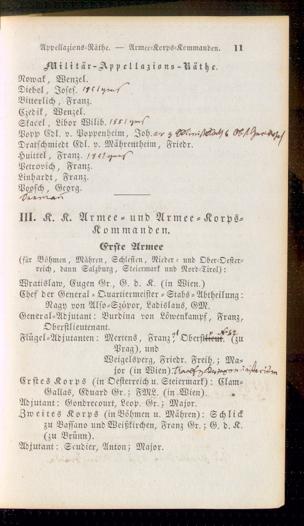 Appellazions-Räthe. — Armee-Korps-Kommanden. 11
Militär-Appellazions-Räthe.
Nowak, Wenzel.
Diebel, Josef.
Bitterlich, Franz.
Czedik, Wenzel.
Stacel, Libor Wilib.
Popp Edl. v. Poppenheim, Joh.
Dratschmiedt Edl. v. Mährentheim, Friedr.
Huittel, Franz.
Petrovich, Franz.
Linhardt, Franz.
Popsch, Georg.
III. K. K. Armee- und Armee-Korps-
Kommanden.
Erste Armee
(für Böhmen, Mähren, Schlesien, Nieder- und Ober-Oester-
reich, dann Salzburg, Steiermark und Nord-Tirol):
Wratislaw, Eugen Gr., G. d. K. (in Wien.)
Chef der General-Quartiermeister-Stabs-Abtheilung:
Nagy von Alsó-Szopor, Ladislaus, GM.
General-Adjutant: Burdina von Löwenkampf, Franz,
Oberstlieutenant.
Flügel-Adjutanten: Mertens, Franz, Oberstlieut. (zu
Prag), und
Weigelsperg, Friedr. Freih.; Ma-
jor (in Wien).
Erstes Korps (in Oesterreich u. Steiermark): Clam-
Gallas, Eduard Gr.; FML. (in Wien).
Adjutant: Gondrecourt, Leop. Gr.; Major.
Zweites Korps (in Böhmen u. Mähren): Schlick
zu Bassano und Weißkirchen, Franz Gr.; G. d. K.
(zu Brünn).
Adjutant: Scudier, Anton; Major.